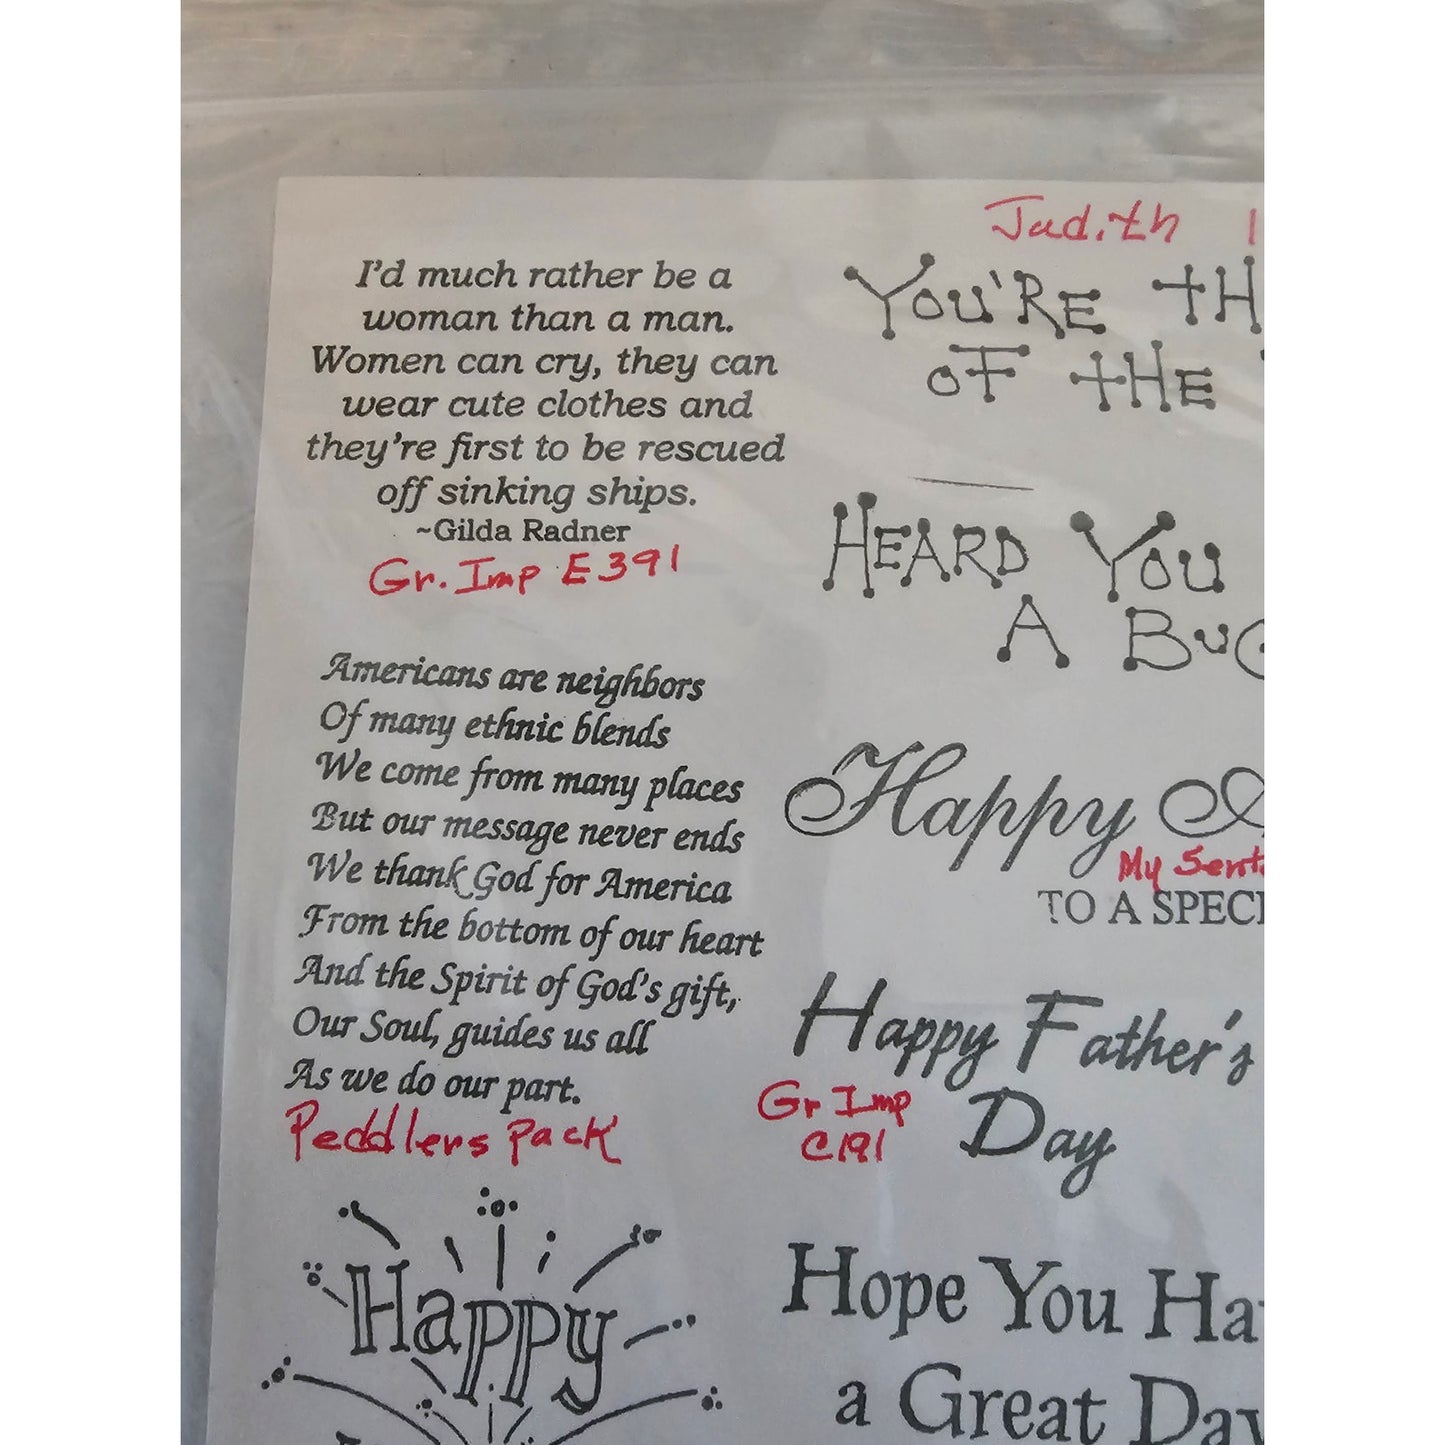 I'd much rather be a
woman than a man.
Women can cry, they can
wear cute clothes and
they're first to be rescued
off sinking ships.
~Gilda Radner
Gr. Imp E391
Americans are neighbors
Of many ethnic blends
We come from many places
But our message never ends
We thank God for America
From the bottom of our heart
And the Spirit of God's gift,
Our Soul, guides us all
As we do our part.
Peddlers Pack
Happy
Judith
You're
of the
Heard You
A
Happy
My
TO A
Happy Father's
Day
Gr Imp
C191
Hope You
a Great